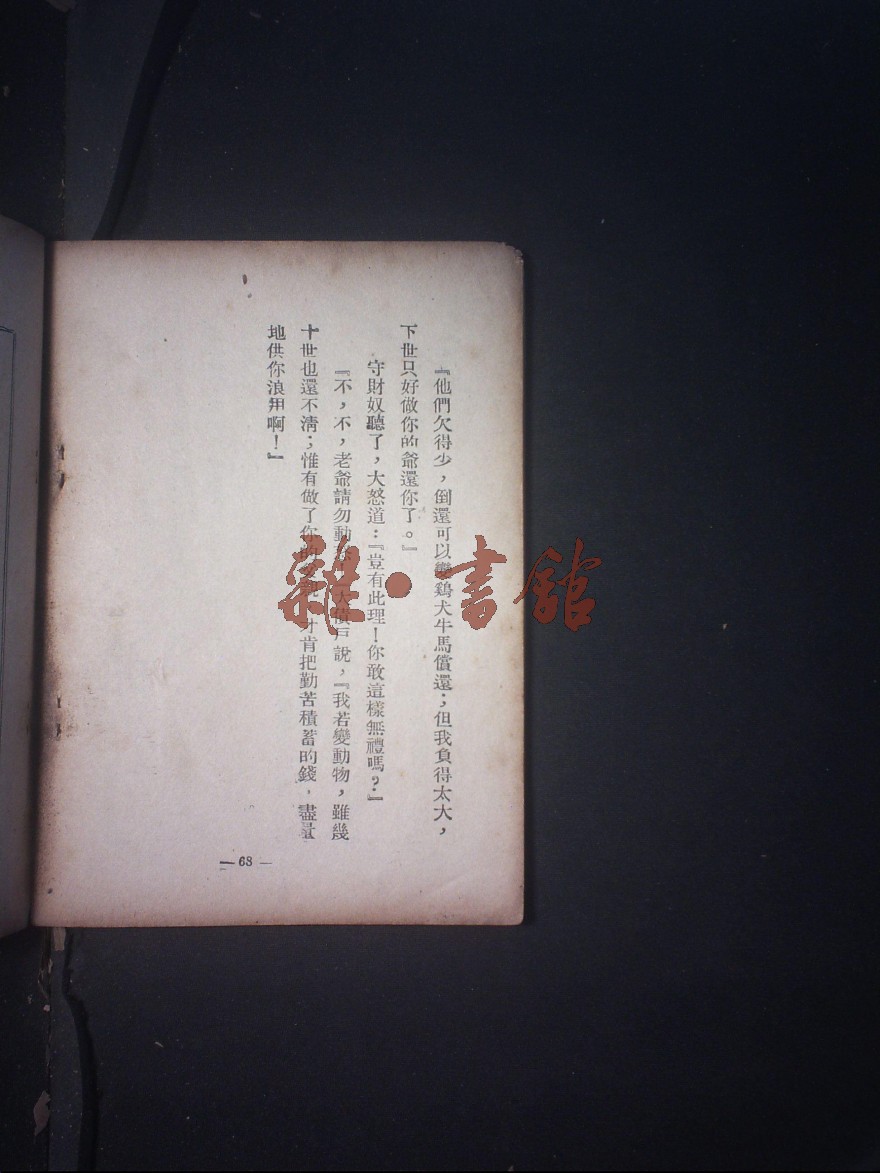 『他們欠得少，倒還可以變鷄犬牛馬償還；但我負得太大，
下世只好做你的爺還你了。』
守財奴聽了，大怒道：『豈有此理！你敢這樣無禮嗎？』
『不，不，老爺請勿動　大債戶說，『我若變動物，雖幾
十世也還不淸；惟有做了你　才肯把勤苦積蓄的錢，盡量
地供你浪用啊！』
— 68 —
雜·書館